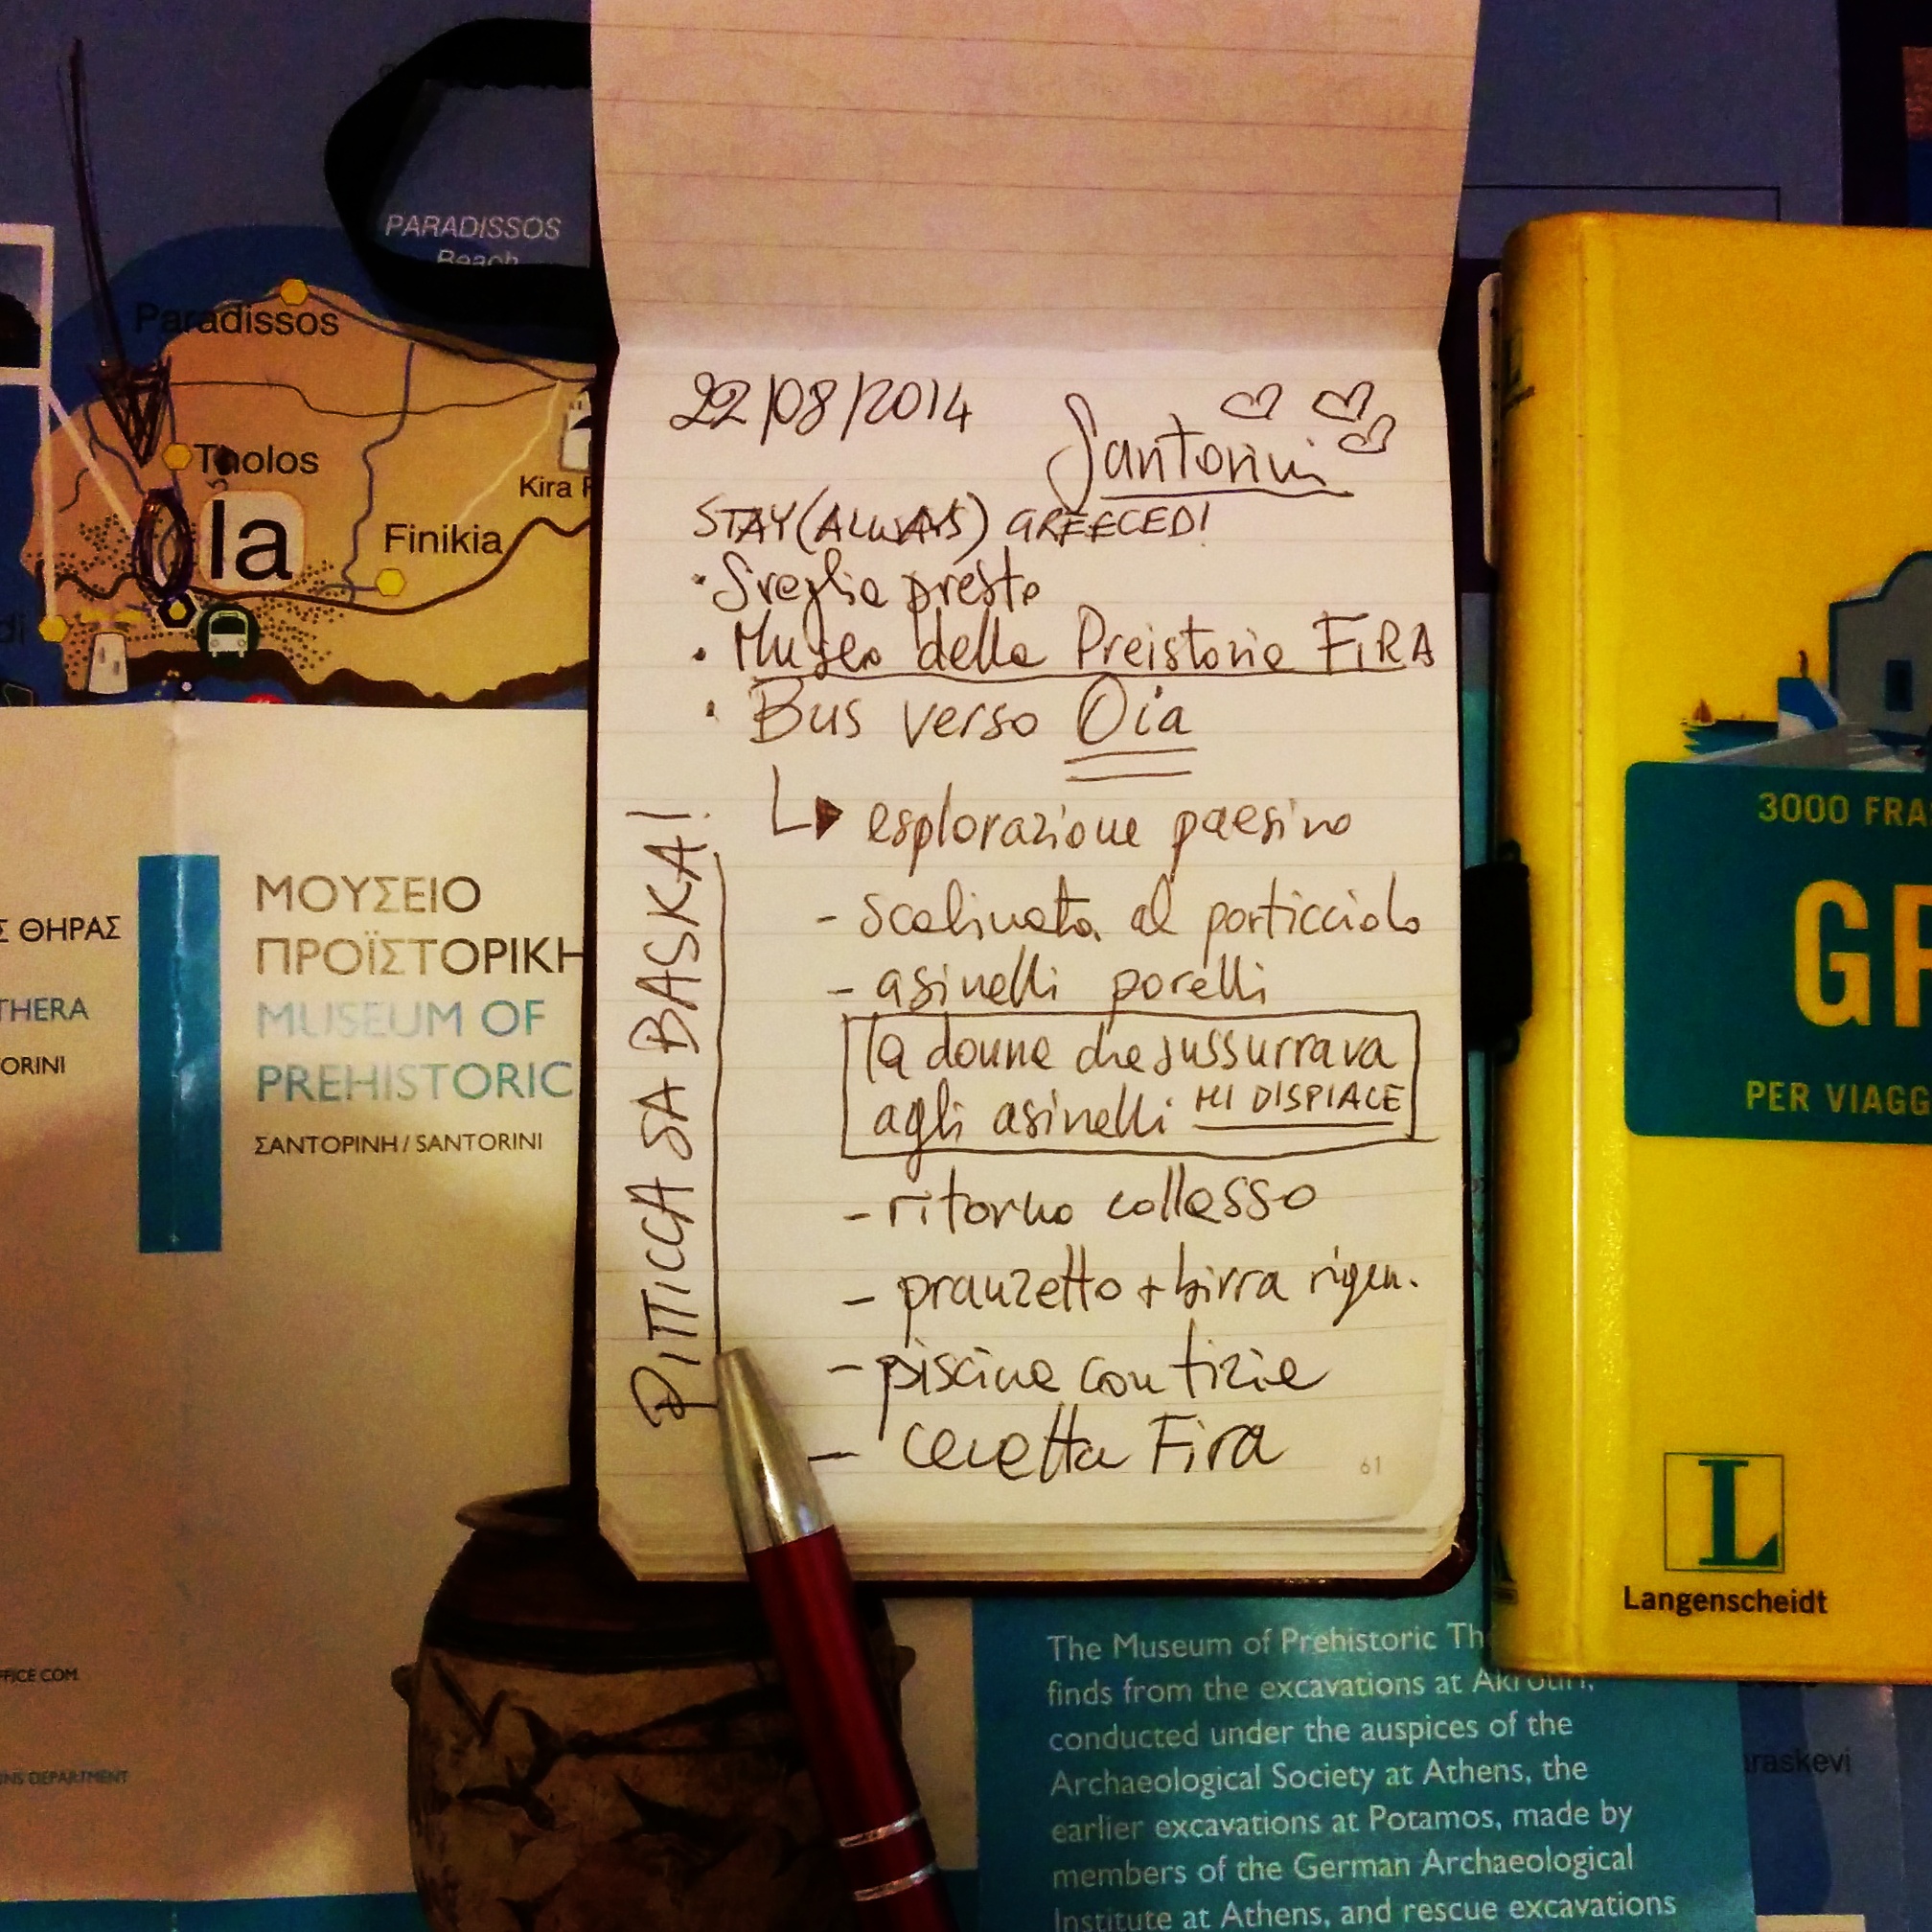 PARADISSOS
Beach
Paradissos
Tholos
Ia
Finikia
Kira
22/08/2014
Santorini
STAY (ALWAYS) GREECED!
• Sveglia presto
• Museo della Preistoria FIRA
• Bus verso Oia
esplorazione paesino
- scalinata al porticciolo
- asinelli porelli
la donna che sussurrava
agli asinelli MI DISPIACE
- ritorno collasso
- pranzetto + birra rigen.
- piscina con tizie
- cenetta Fira
61
PITICCA SA BASKA!
Σ ΘΗΡΑΣ
THERA
ORINI
ΜΟΥΣΕΙΟ
ΠΡΟΪΣΤΟΡΙΚΗ
MUSEUM OF
PREHISTORIC
ΣΑΝΤΟΡΙΝΗ / SANTORINI
FFICE.COM
NS DEPARTMENT
3000 FRA
GR
PER VIAGG
L
Langenscheidt
The Museum of Prehistoric Th
finds from the excavations at Akrotiri,
conducted under the auspices of the
Archaeological Society at Athens, the
earlier excavations at Potamos, made by
members of the German Archaeological
Institute at Athens, and rescue excavations
raskevi